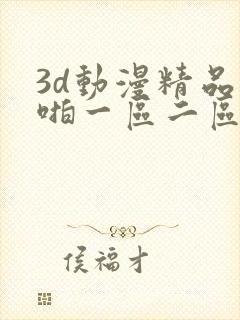 3d動漫精品
啪一區二區
侯福才